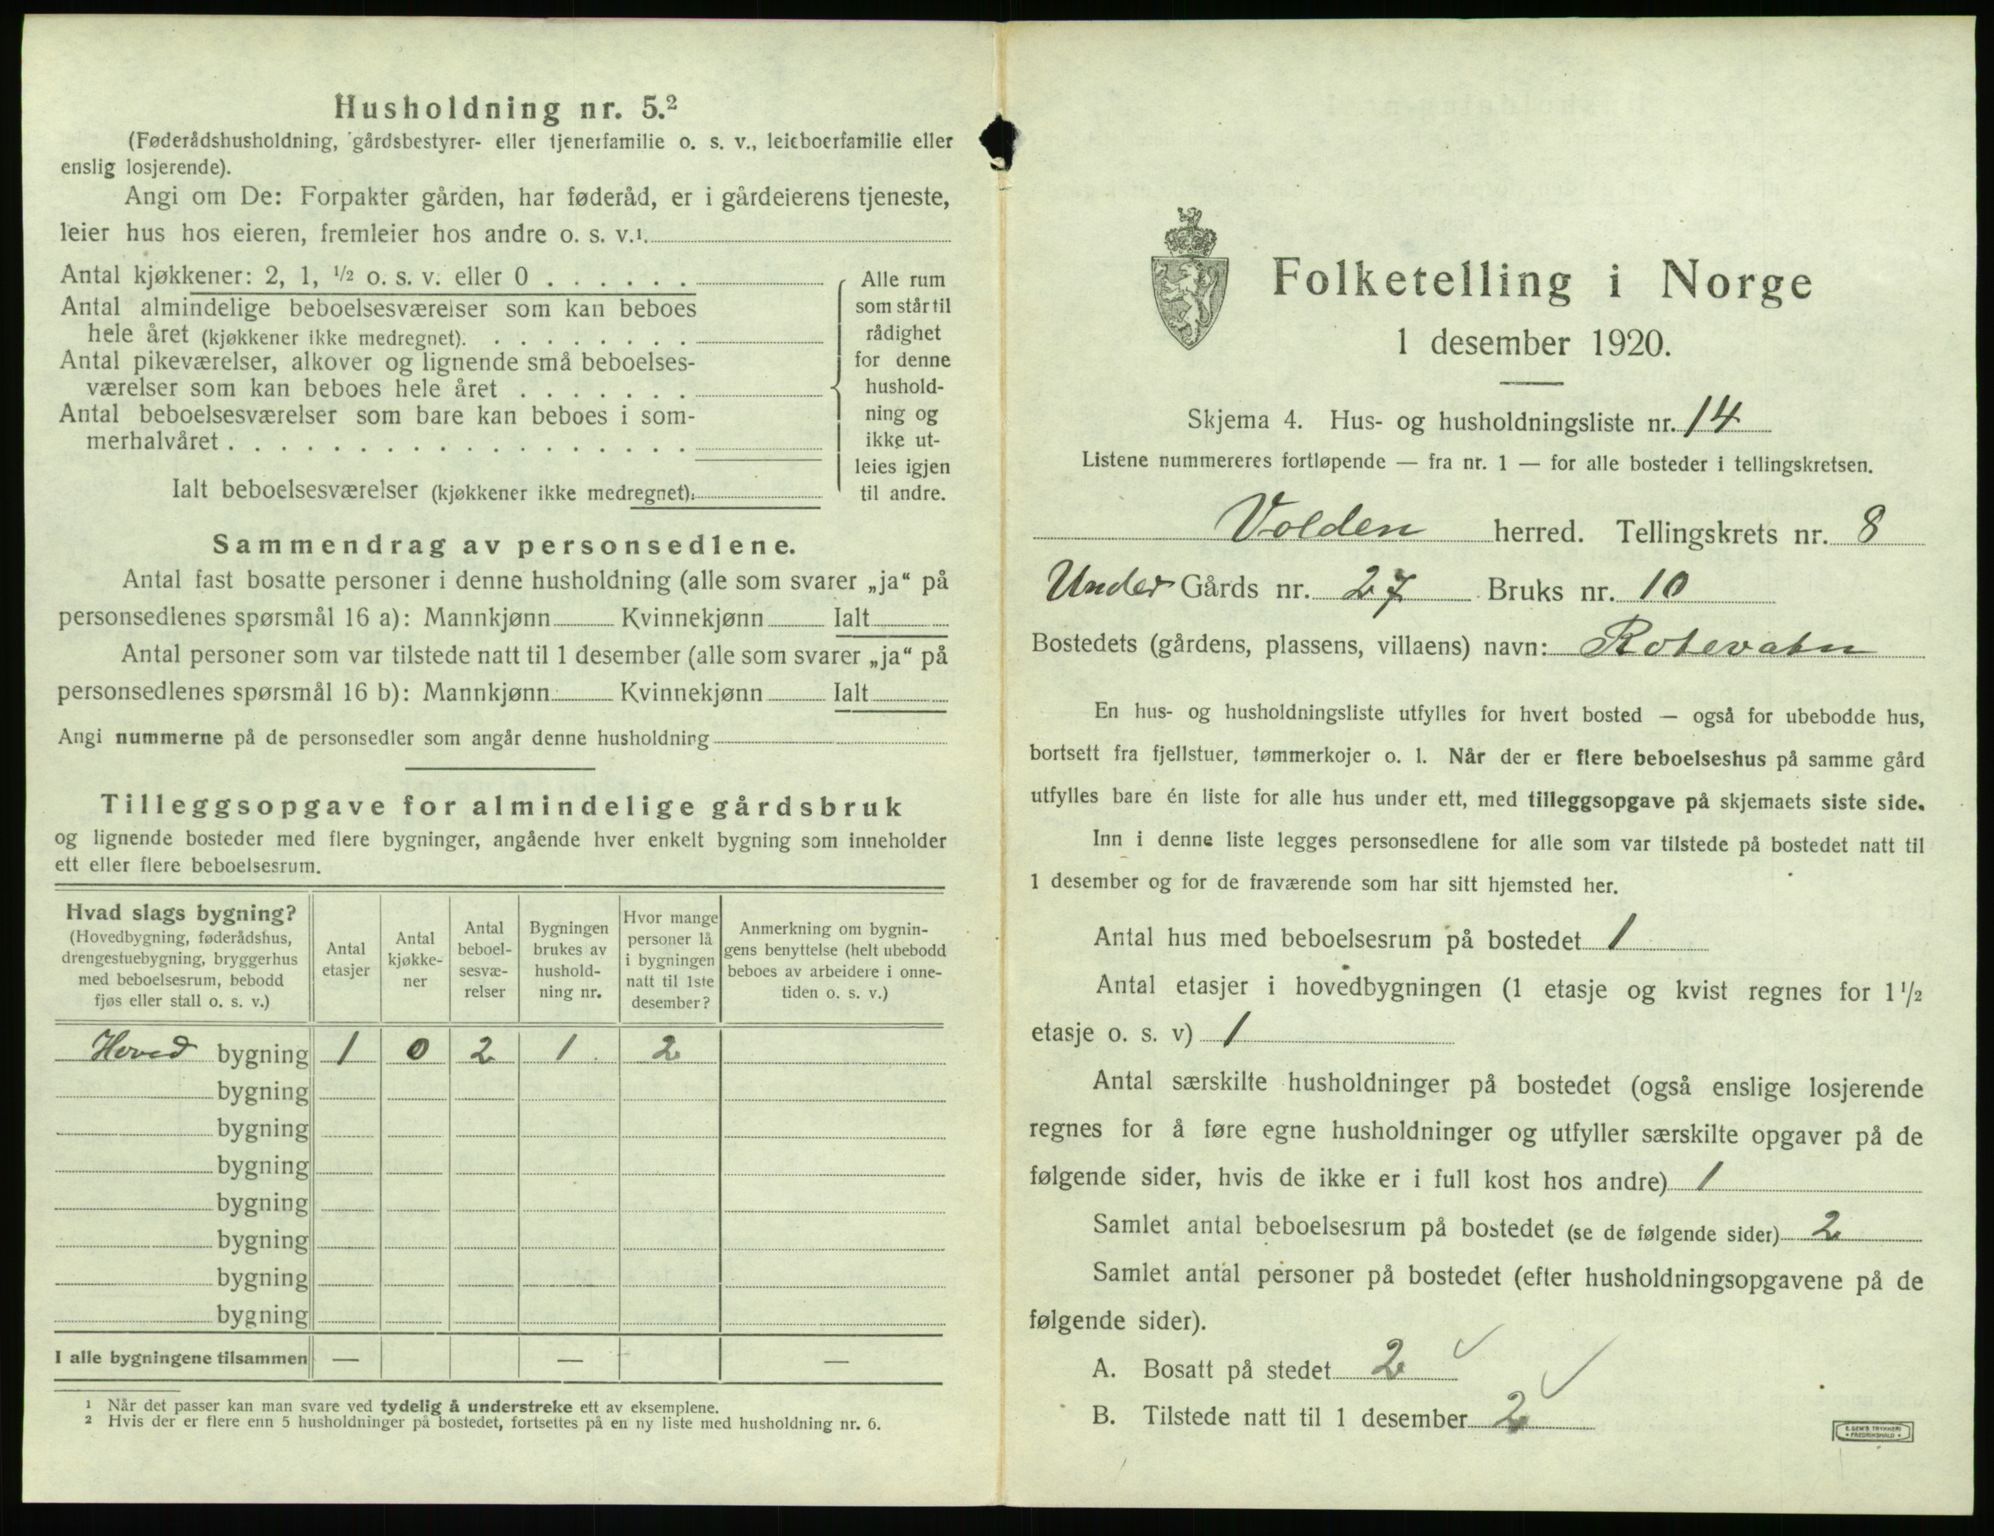 Husholdning nr. 5.²
(Føderådshusholdning, gårdsbestyrer- eller tjenerfamilie o. s. v., leieboerfamilie eller
enslig losjerende).
Angi om De: Forpakter gården, har føderåd, er i gårdeierens tjeneste,
leier hus hos eieren, fremleier hos andre o. s. v.¹
Antal kjøkkener: 2, 1, ½ o. s. v. eller 0 . . . . . .
Antal almindelige beboelsesværelser som kan beboes
hele året (kjøkkener ikke medregnet). . . . . . . . .
Antal pikeværelser, alkover og lignende små beboelses-
værelser som kan beboes hele året . . . . . . .
Antal beboelsesværelser som bare kan beboes i som-
merhalvåret . . . . . . . . . . . . . . . . . .
Ialt beboelsesværelser (kjøkkener ikke medregnet):
Alle rum
som står til
rådighet
for denne
hushold-
ning og
ikke ut-
leies igjen
til andre.
Sammendrag av personsedlene.
Antal fast bosatte personer i denne husholdning (alle som svarer „ja“ på
personsedlenes spørsmål 16 a): Mannkjønn Kvinnekjønn Ialt
Antal personer som var tilstede natt til 1 desember (alle som svarer „ja“ på
personsedlenes spørsmål 16 b): Mannkjønn Kvinnekjønn Ialt
Angi nummerne på de personsedler som angår denne husholdning
Tilleggsopgave for almindelige gårdsbruk
og lignende bosteder med flere bygninger, angående hver enkelt bygning som inneholder
ett eller flere beboelsesrum.
Hvad slags bygning?
(Hovedbygning, føderådshus,
drengestuebygning, bryggerhus
med beboelsesrum, bebodd
fjøs eller stall o. s. v.)
Antal
etasjer
Antal
kjøkke-
ner
Antal
beboel-
sesvæ-
relser
Bygningen
brukes av
hushold-
ning nr.
Hvor mange
personer lå
i bygningen
natt til 1ste
desember?
Anmerkning om bygnin-
gens benyttelse (helt ubebodd
beboes av arbeidere i onne-
tiden o. s. v.)
Hoved bygning 1 0 2 1 2
bygning
bygning
bygning
bygning
bygning
bygning
bygning
I alle bygningene tilsammen — — —
¹ Når det passer kan man svare ved tydelig å understreke ett av eksemplene.
² Hvis der er flere enn 5 husholdninger på bostedet, fortsettes på en ny liste med husholdning nr. 6.
Folketelling i Norge
1 desember 1920.
Skjema 4. Hus- og husholdningsliste nr. 14
Listene nummereres fortløpende — fra nr. 1 — for alle bosteder i tellingskretsen.
Volden herred. Tellingskrets nr. 8
Under Gårds nr. 27 Bruks nr. 10
Bostedets (gårdens, plassens, villaens) navn: Rotevatn
En hus- og husholdningsliste utfylles for hvert bosted — også for ubebodde hus,
bortsett fra fjellstuer, tømmerkojer o. l. Når der er flere beboelseshus på samme gård
utfylles bare én liste for alle hus under ett, med tilleggsopgave på skjemaets siste side.
Inn i denne liste legges personsedlene for alle som var tilstede på bostedet natt til
1 desember og for de fraværende som har sitt hjemsted her.
Antal hus med beboelsesrum på bostedet 1
Antal etasjer i hovedbygningen (1 etasje og kvist regnes for 1½
etasje o. s. v) 1
Antal særskilte husholdninger på bostedet (også enslige losjerende
regnes for å føre egne husholdninger og utfyller særskilte opgaver på de
følgende sider, hvis de ikke er i full kost hos andre) 1
Samlet antal beboelsesrum på bostedet (se de følgende sider) 2
Samlet antal personer på bostedet (efter husholdningsopgavene på de
følgende sider).
A. Bosatt på stedet 2 ✓
B. Tilstede natt til 1 desember 2 ✓
E. SEM'S TRYKKERI
• FREDRIKSHALD •